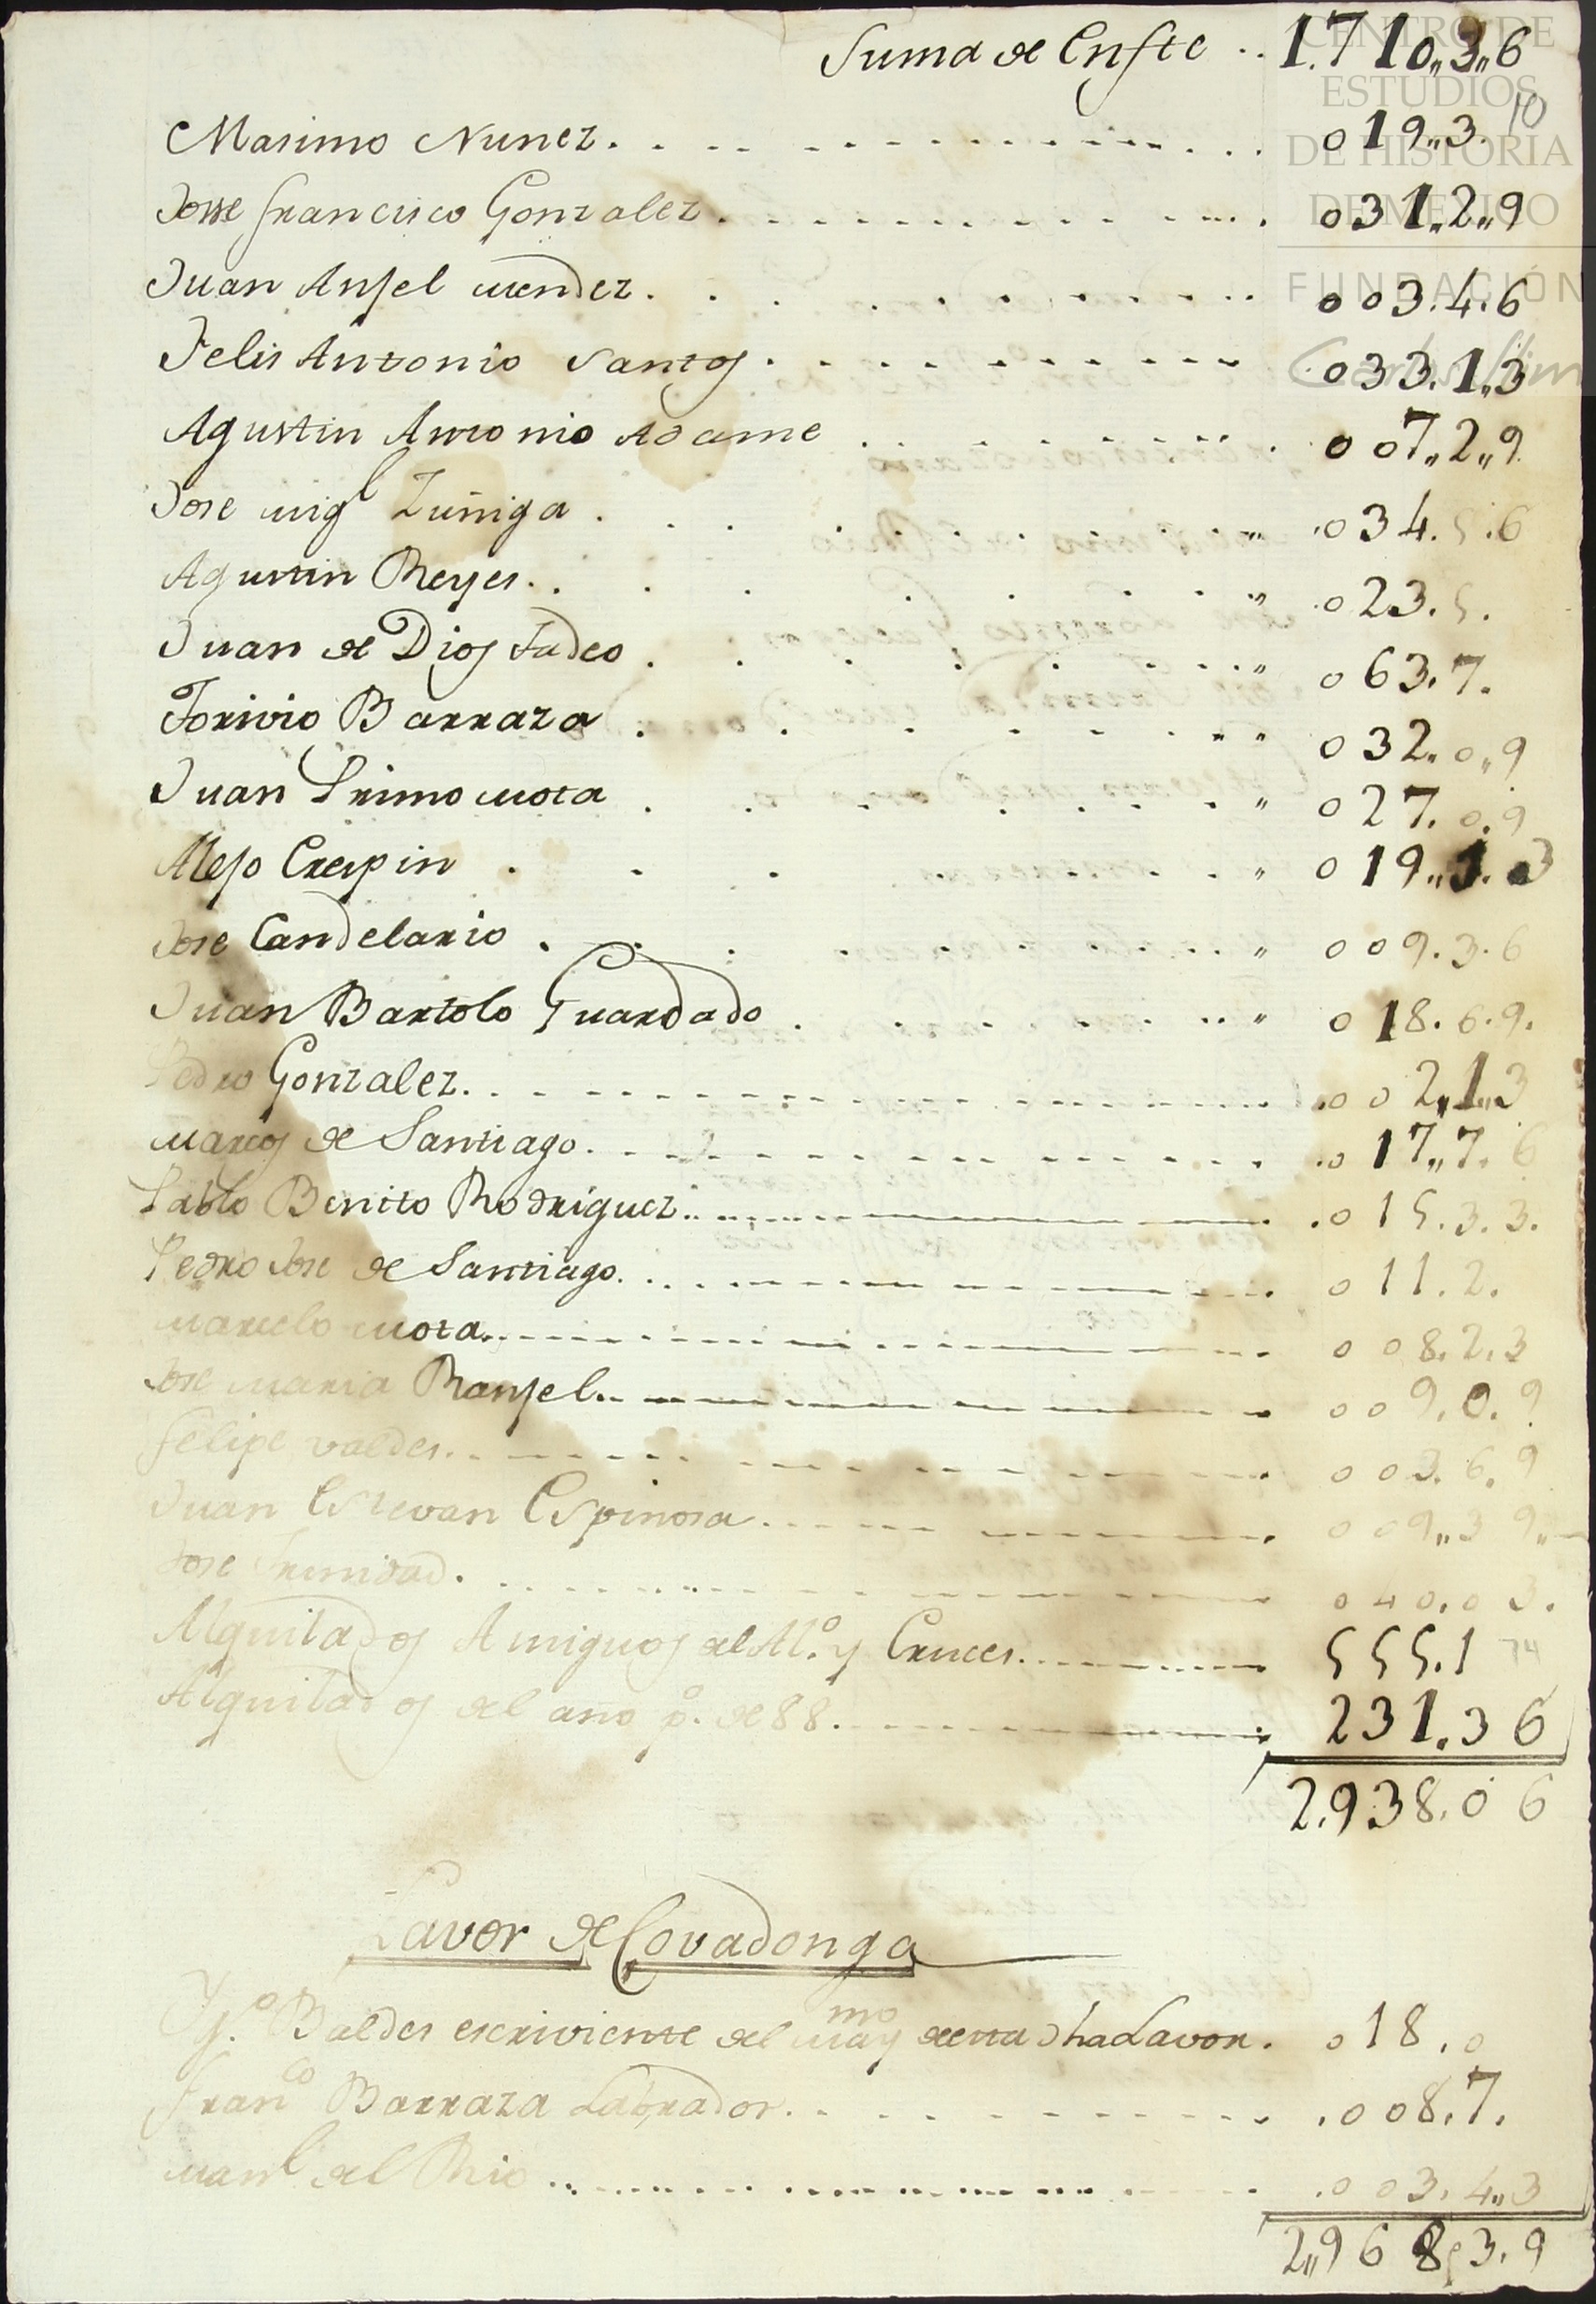 Suma de Enfte .. 1.710,,3,,6
10
Masimo Nunez. 019,,3.
Josse francisco Gonzalez. 031,,2,,9
Juan Anjel mendez. 003.4.6
Felis Antonio Santos. 033.1,,3
Agustin Antonio Adame 007,,2,,9
Jose migl Zuñiga. 034.5.6
Agustin Reyes. 023.5.
Juan de Dios tadeo. 063.7.
Torivio Barraza. 032.0,,9
Juan Primo mota. 027.0.9
Alejo Crespin. 019,,1.3
Jose Candelario. 009.3.6
Juan Bartolo Guardado. 018.6.9.
Pedro Gonzalez. 002,,1,,3
marcos de Santiago. 017,,7.6
Pablo Benito Rodriguez. 015.3.3.
Pedro Jose de Santiago. 011.2.
marcelo mota. 008.2.3
Jose maria Ranjel. 009.0.9
felipe valdes. 003.6.9
Juan Estevan Espinosa. 009,,3 9,,
Jose Trinidad. 040.0 3.
Alquilados Amiguos del Mo. y Cruces. 555.1
Alquilados del ano p.o de 88. 231.3 6
2.938.0 6
Lavor de Covadonga
Yg.o Baldes escriviente del maymo desta dha Lavor. 018.0
Franco Barraza Labrador. 008.7.
manl del Rio. 003.4,,3
2,,968,3.9
CENTRO DE
ESTUDIOS
DE HISTORIA
DE MEXICO
FUNDACIÓN
Carlos Slim